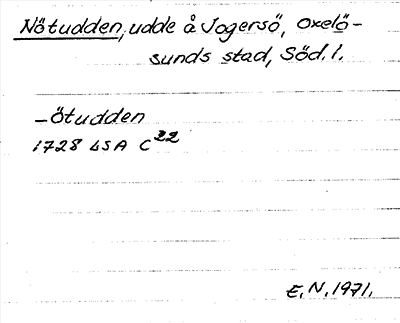 Nötudden, udde å Jogersö, Oxelö-
sunds stad, Söd. l.
-ötudden
1728 LSA C 22
E.N. 1971.